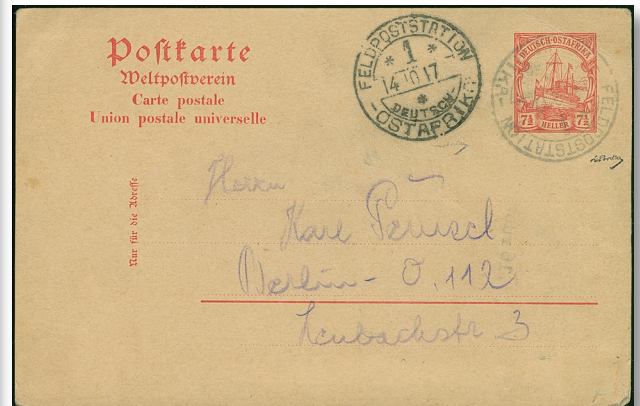 Postkarte
Weltpostverein
Carte postale
Union postale universelle
FELDPOSTSTATION
* 1 *
14.10.17
*
DEUTSCH-
-OSTAFRIKA
DEUTSCH-OSTAFRIKA
7½ HELLER 7½
FELDPOSTSTATION
Nur für die Adresse
Herrn
Karl
Berlin - O. 112
3